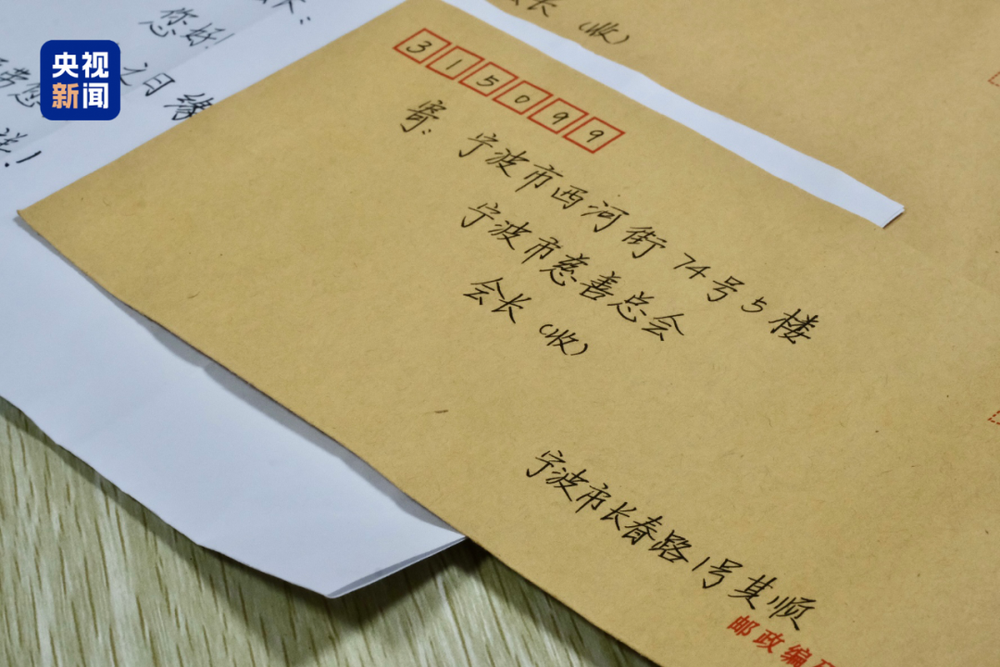 央视
新闻
您好!
会长(收)
315099
寄:
宁波市西河街74号5楼
宁波市慈善总会
会长(收)
宁波市长春路1号其顺
邮政编